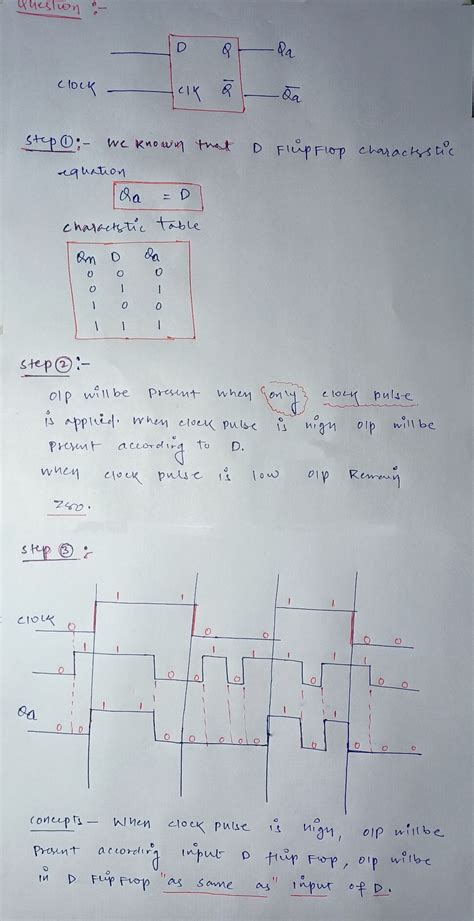 Question :-
D Q Qa
Clock CLK Q̅ Q̅a
Step ① :- We known that D FlipFlop charactystic
equation
Qa = D
charactstic table
Qn D Qa
0 0 0
0 1 1
1 0 0
1 1 1
Step ② :-
O/P will be Present when only clock pulse
is applied. When clock pulse is high O/P will be
Present according to D.
When clock pulse is low O/P Remain
zero.
Step ③ :-
1 1 1 1
Clock 0 0 0 0 0 0
1 1 1 1 1 1
0 0 0 0 0 0 0
1 1 1 1
Qa 0 0 0 0 0 0 0 0 0 0 0 0
Concepts - When clock pulse is high, O/P will be
Present according input D flip flop, O/P will be
in D Flip Flop "as same as" input of D.